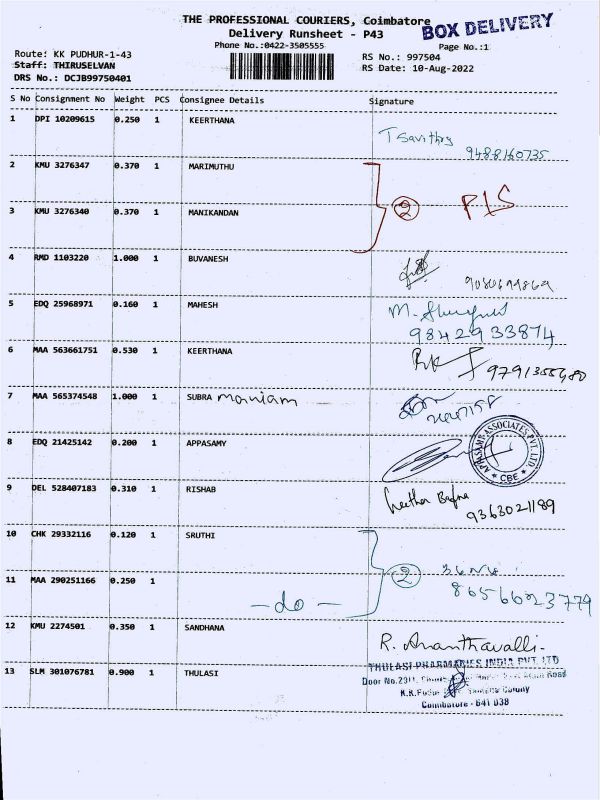 THE PROFESSIONAL COURIERS, Coimbatore
BOX DELIVERY
Delivery Runsheet - P43
Phone No.:0422-3505555
Page No.:1
Route: KK PUDHUR-1-43
RS No.: 997504
Staff: THIRUSELVAN
RS Date: 10-Aug-2022
DRS No.: DCJB99750401
S No Consignment No Weight PCS Consignee Details Signature
1 DPI 10209615 0.250 1 KEERTHANA
T Savithry
9488160735
2 KMU 3276347 0.370 1 MARIMUTHU
3 KMU 3276340 0.370 1 MANIKANDAN
2 P/S
4 RMD 1103220 1.000 1 BUVANESH
5 EDQ 25968971 0.160 1 MAHESH
9842933874
6 MAA 563661751 0.530 1 KEERTHANA
7 MAA 565374548 1.000 1 SUBRA maniam
8 EDQ 21425142 0.200 1 APPASAMY
APPASAMY ASSOCIATES PVT. LTD. * CBE *
9 DEL 528407183 0.310 1 RISHAB
9363021189
10 CHK 29332116 0.120 1 SRUTHI
11 MAA 290251166 0.250 1
- do -
2
12 KMU 2274501 0.350 1 SANDHANA
R. Ananthavalli.
13 SLM 301076781 0.900 1 THULASI
THULASI PHARMACIES INDIA PVT. LTD
Coimbatore - 641 038